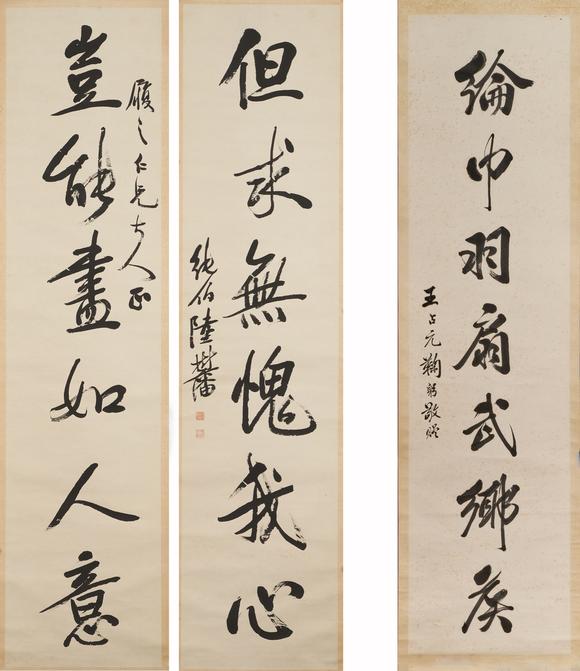 履之仁兄大人正
豈能盡如人意
但求無愧我心
純伯陸樹藩
綸巾羽扇武鄉侯
王占元鞠躬敬